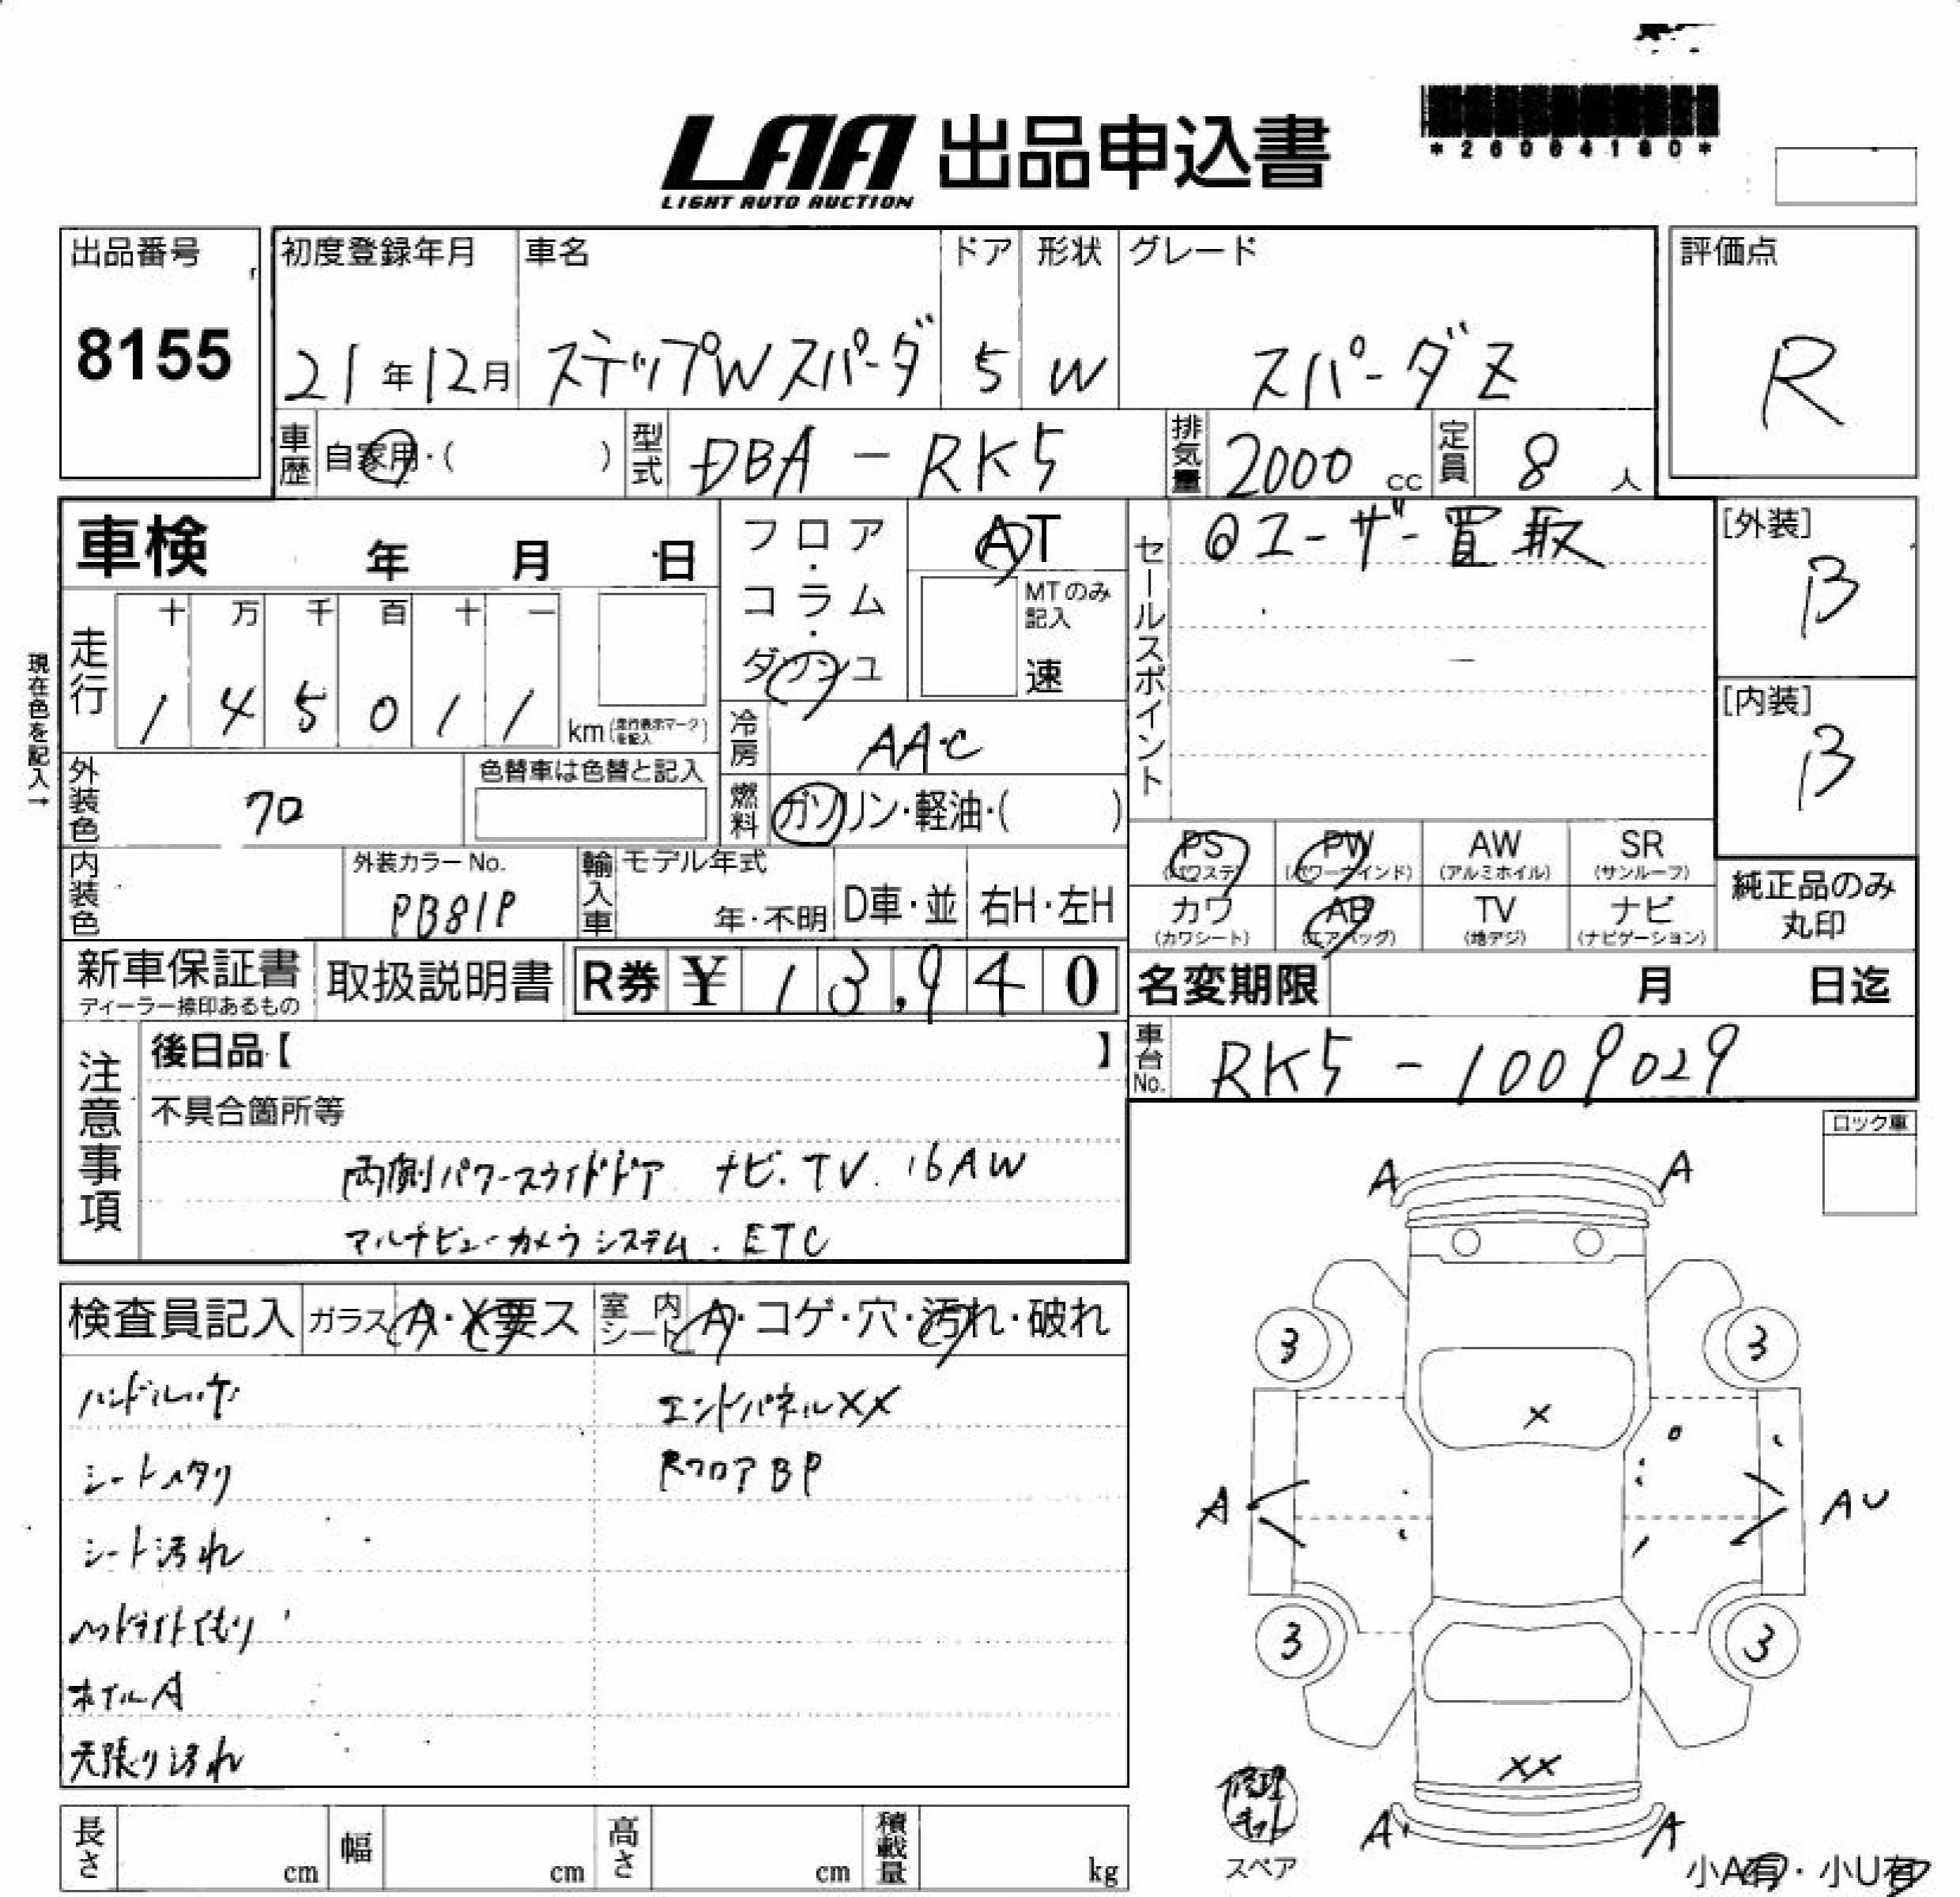 LAA 出品申込書
LIGHT AUTO AUCTION
出品番号
8155
初度登録年月
21年12月
車名
ステップWスパーダ
ドア
5
形状
W
グレード
スパーダZ
評価点
R
車歴
自家用・( )
型式
DBA-RK5
排気量
2000cc
定員
8人
車検 年 月 日
走行
十 万 千 百 十 一
1 4 5 0 1 1
km(走行表示マークを記入)
現在色を記入→
外装色
クロ
色替車は色替と記入
内装色
外装カラーNo.
PB81P
輸入車
モデル年式
年・不明
D車・並
右H・左H
フロア・コラム・ダッシュ
AT
MTのみ記入
速
冷房
AAC
燃料
ガソリン・軽油・( )
セールスポイント
ユーザー買取
[外装]
B
[内装]
B
PS
(パワステ)
PW
(パワーウインド)
AW
(アルミホイル)
SR
(サンルーフ)
カワ
(カワシート)
AB
(エアバッグ)
TV
(地デジ)
ナビ
(ナビゲーション)
純正品のみ
丸印
新車保証書
ディーラー捺印あるもの
取扱説明書
R券 ¥13,940
名変期限 月 日迄
車台No.
RK5-1009029
注意事項
後日品【 】
不具合箇所等
両側パワースライドドア ナビ.TV.16AW
マルチビューカメラシステム.ETC
ロック車
検査員記入
ガラス A・X要ス
室内シート A・コゲ・穴・汚れ・破れ
シートヘタリ
シート汚れ
ヘッドライトくもり
ホイルA
天張り汚れ
エンドパネルXX
RフロアBP
A A
3 3
X
A AU
3 3
XX
A A
修理キット
スペア
小A有・小U有
長さ cm
幅 cm
高さ cm
積載量 kg